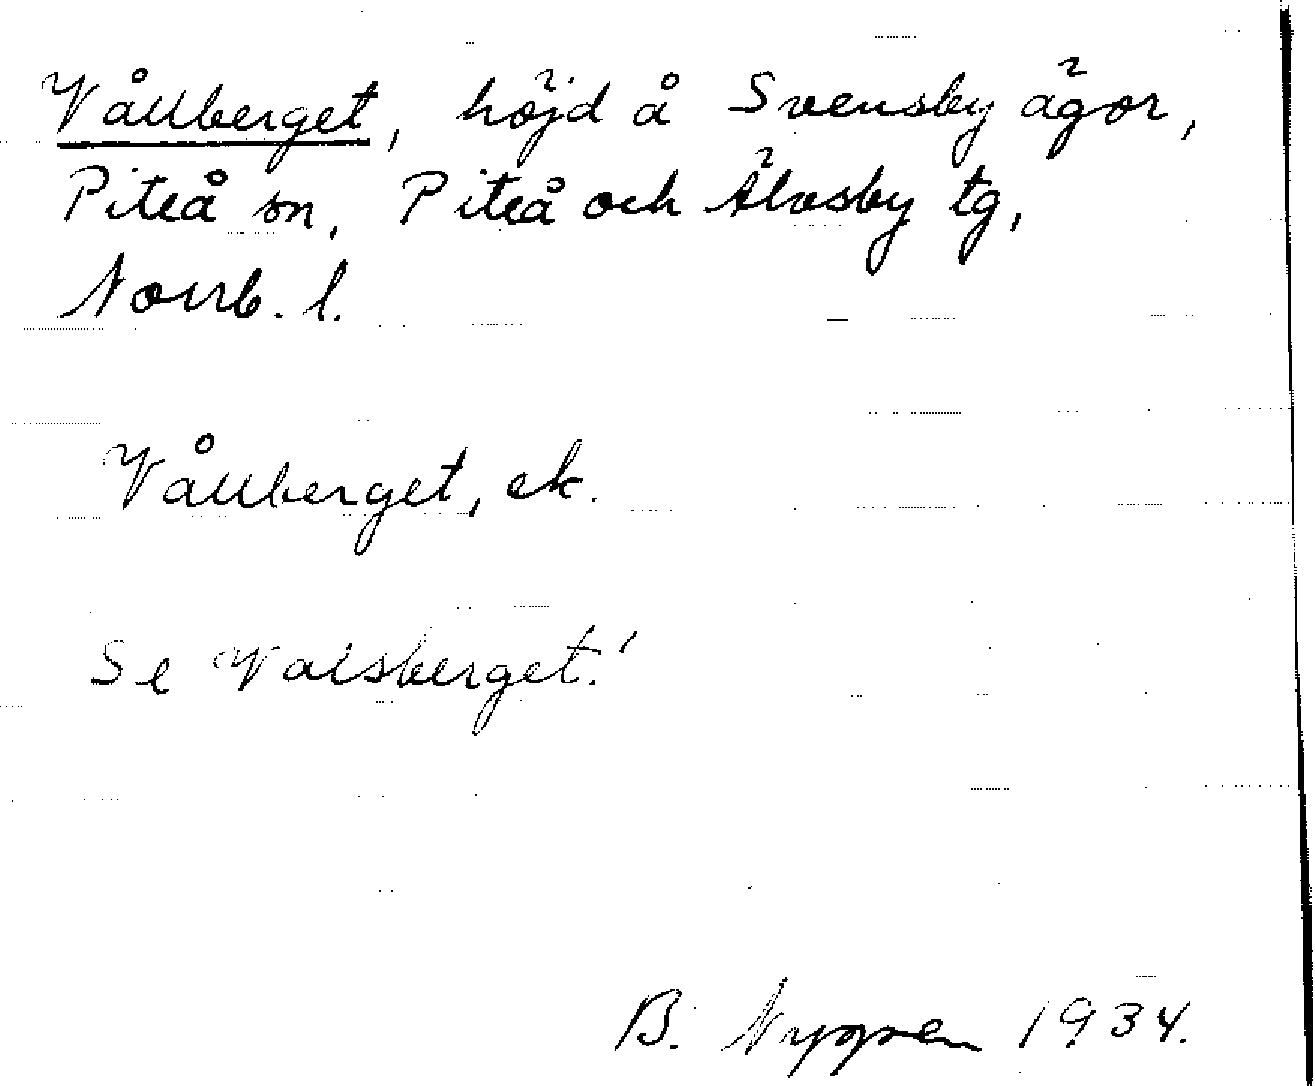 Vållberget, höjd å Svensby ägor,
Piteå sn, Piteå och Älvsby tg,
Norrb. l.
Vållberget, ek.
Se Valsberget!
B. Nygren 1934.